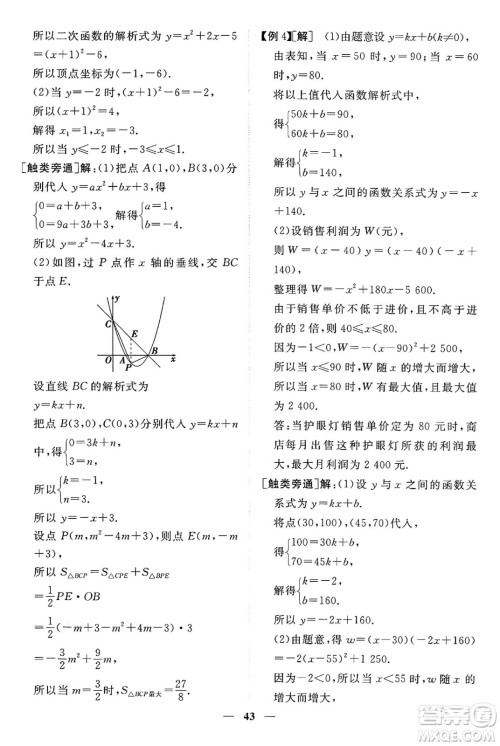 所以二次函数的解析式为 y=x²+2x-5
=(x+1)²-6.
所以顶点坐标为(-1,-6).
(2)当 y=-2 时,(x+1)²-6=-2.
所以(x+1)²=4.
解得 x₁=1,x₂=-3.
所以 x≤-2 时,x≤-3.
[触类旁通]解:(1)把点 A(1,0),B(3,0)分
别代入 y=ax²+bx+3,得
{0=a+b+3, 0=9a+3b+3, 解得{a=1, b=-4.
所以 y=x²-4x+3.
(2)如图,过 P 点作 x 轴的垂线,交 BC
于点 E.
y
C
E
O
A
B
x
P
设直线 BC 的解析式为
y=kx+n.
把点 B(3,0),C(0,3)分别代入 y=kx+n
中,得{0=3k+n, 3=n.
所以{k=-1, n=3.
所以 y=-x+3.
设点 P(m,m²-4m+3),则点 E(m,
-m+3).
所以 S△BCP=S△CPE+S△BPE
=1/2 PE·OB
=1/2(-m+3-m²+4m-3)·3
=-3/2 m²+9/2 m.
所以当 m=3/2 时,S△BCP最大=27/8.
【例 4】[解] (1)由题意设 y=kx+b(k≠0),
由表知,当 x=50 时,y=90;当 x=60
时,y=80.
将以上值代入函数解析式中,
得{50k+b=90, 60k+b=80. 解得{k=-1, b=140.
所以 y 与 x 之间的函数关系式为 y=-x+
140.
(2)设销售利润为 W(元),
则 W=(x-40)y=(x-40)(-x+140),
整理得 W=-x²+180x-5 600.
由于销售单价不低于进价,
所以 40≤x≤80.
因为-1<0,W=-(x-90)²+2 500,
所以当 x≤90 时,W 随 x 的增大而增大,
所以当 x=80 时,W 有最大值,最大值
为 2 400.
答:当护眼灯销售单价定为 80 元时,商
店每月销售这种护眼灯的利润最大,最
大月利润为 2 400 元.
[触类旁通]解:(1)设 y 与 x 之间的函数关
系式为 y=kx+b.
将点(30,100),(45,70)代入,
得{100=30k+b, 70=45k+b. 解得{k=-2, b=160.
所以 y=-2x+160.
(2)由题意,得 w=(x-30)(-2x+160)
=-2(x-55)²+1 250,
因为-2<0,所以当 x<55 时,w 随 x 的
增大而增大.
43
作业帮
MXQE.COM